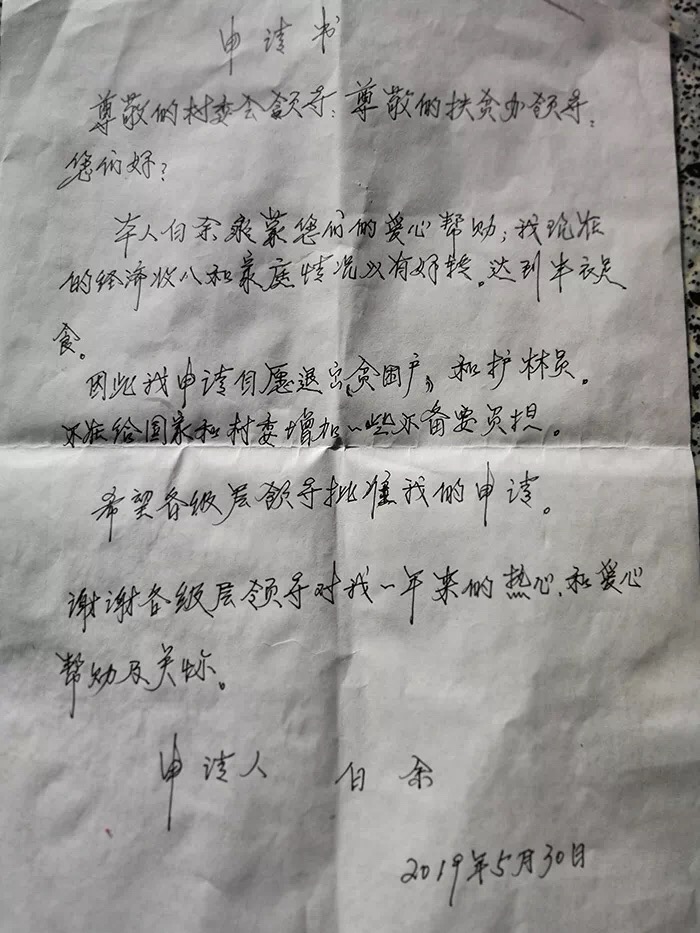 申请书
尊敬的村委会领导：尊敬的扶贫办领导：
您们好？
本人白余承蒙您们的爱心帮助；我现在
的经济收入和家庭情况以有好转。达到半衣足
食。
因此我申请自愿退出“贫困户”和护林员。
不在给国家和村委增加一些不备要负担。
希望各级层领导批准我的申请。
谢谢各级层领导对我一年来的热心、和爱心
帮助及关怀。
申请人 白余
2019年5月30日